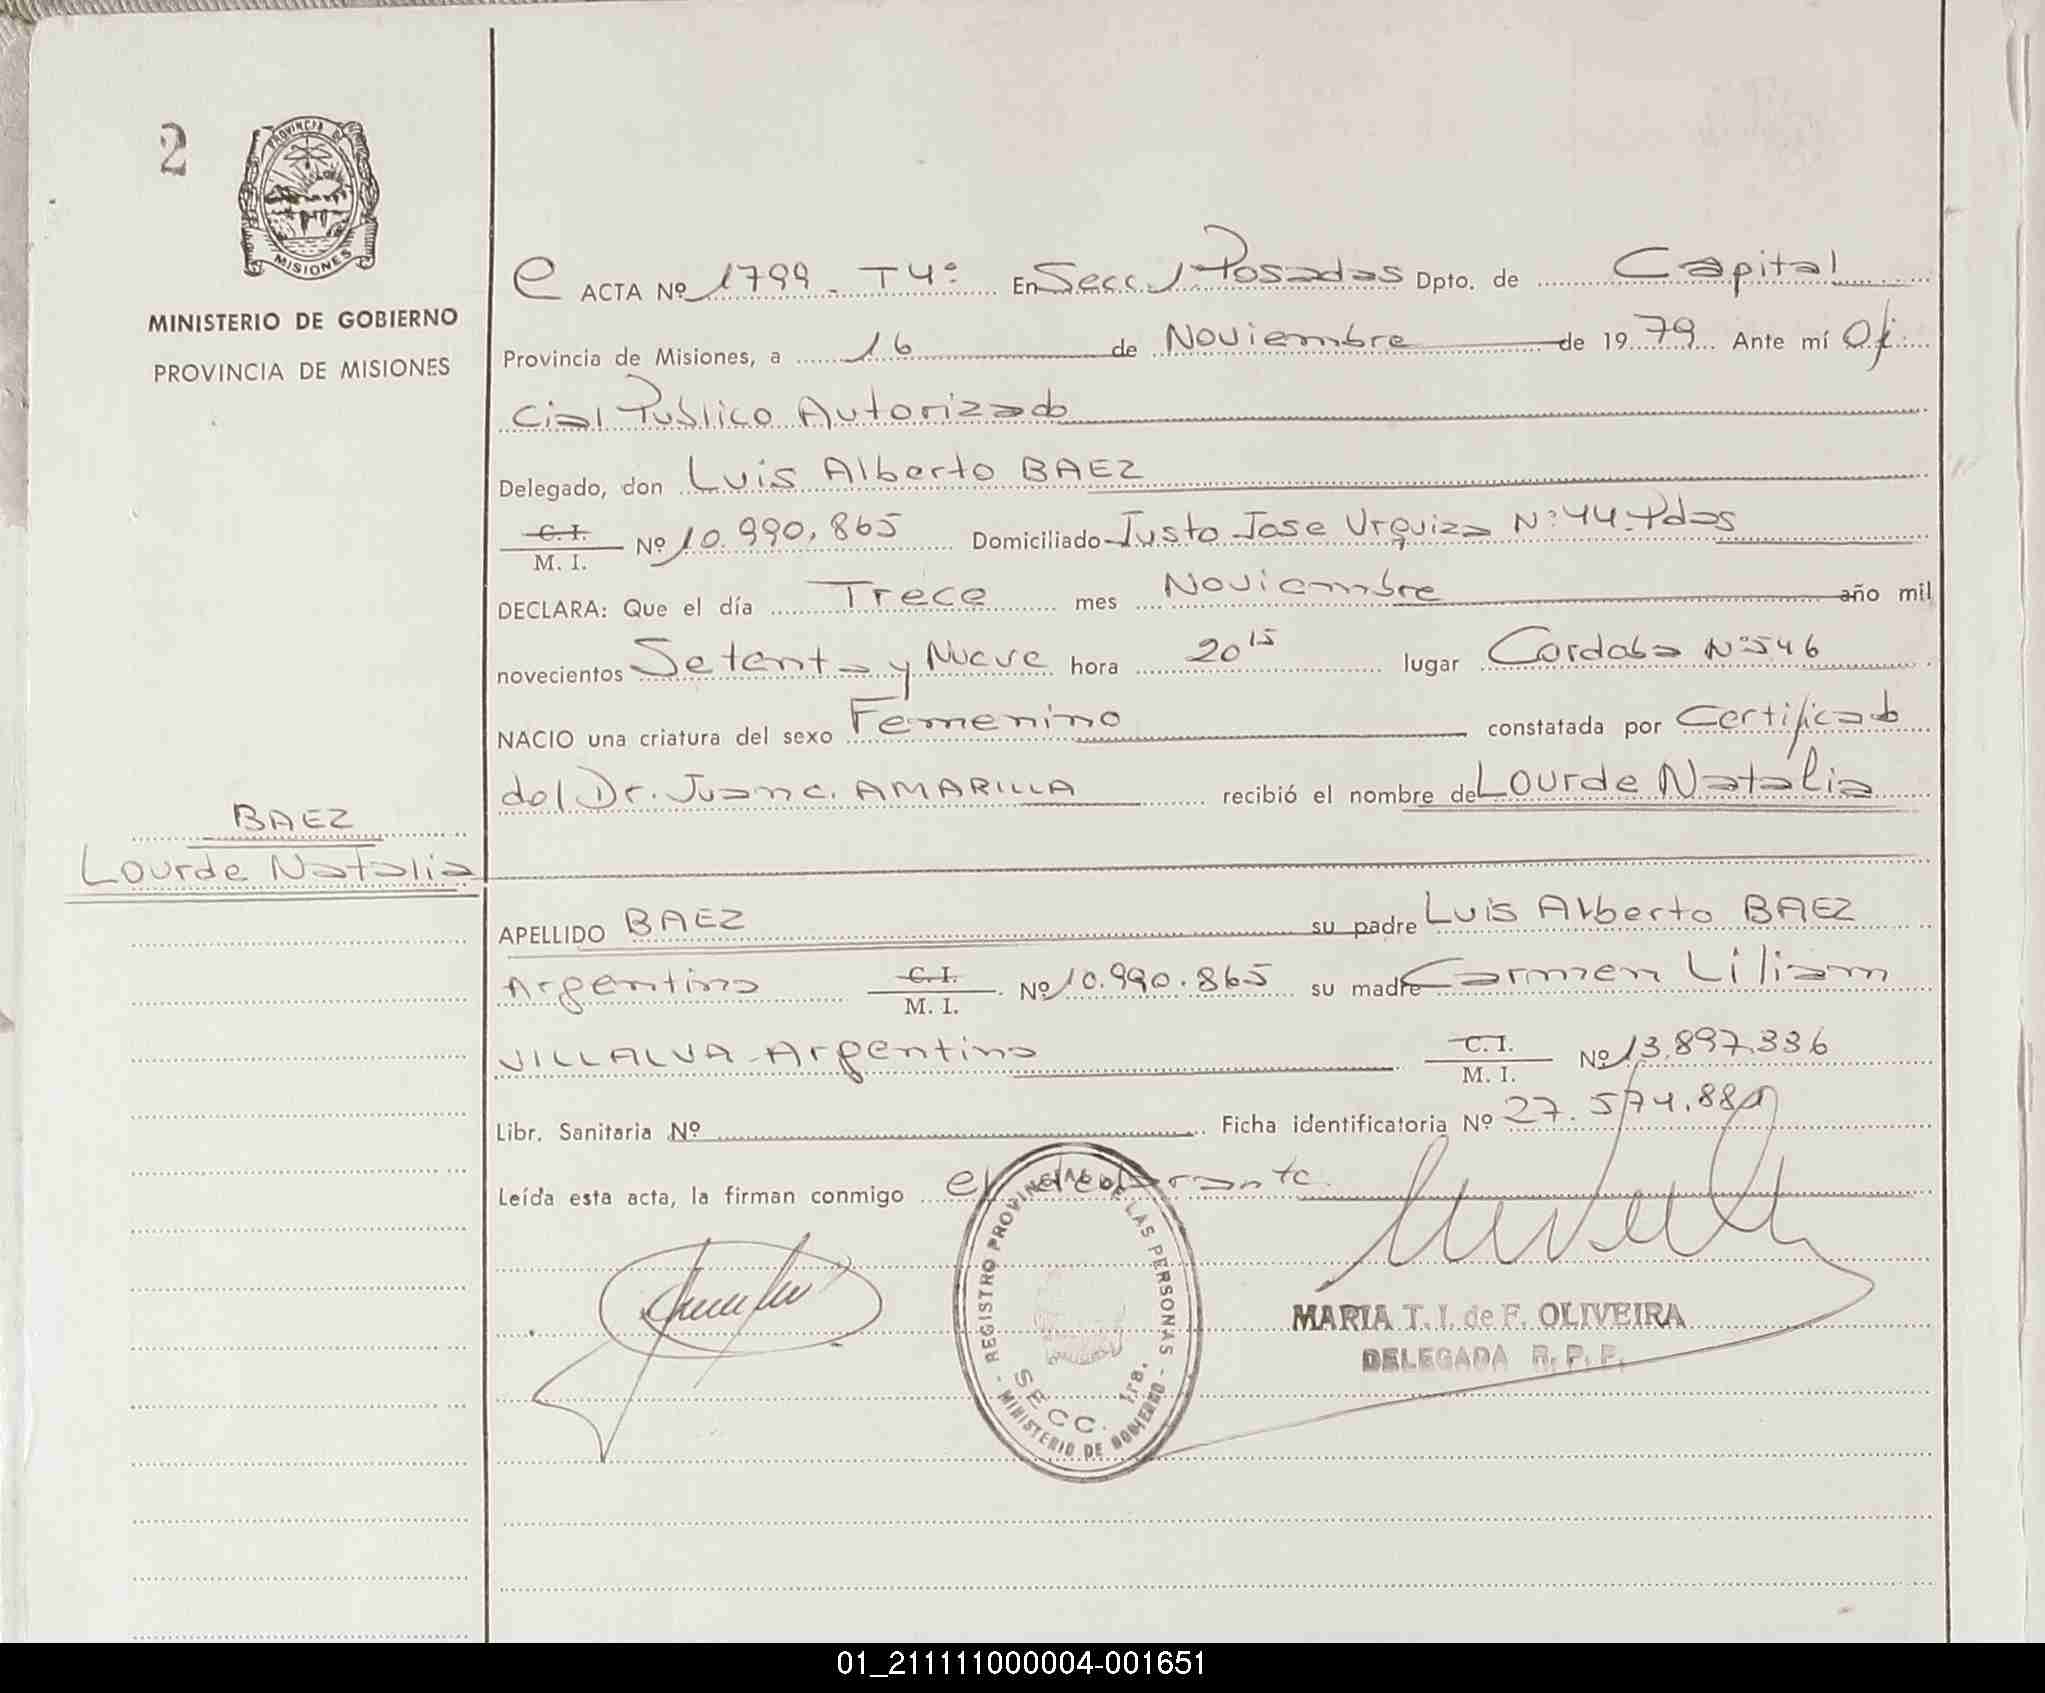 2
PROVINCIA DE
MISIONES
MINISTERIO DE GOBIERNO
PROVINCIA DE MISIONES
BAEZ
Lourde Natalia
e ACTA Nº 1799 - T4º En Secc 1 Posadas Dpto. de Capital
Provincia de Misiones, a 16 de Noviembre de 1979 Ante mí Ofi
cial Publico Autorizado
Delegado, don Luis Alberto BAEZ
C. I.
M. I. Nº 10.990.865 Domiciliado Justo Jose Urquiza Nº 44. Pdas
DECLARA: Que el día Trece mes Noviembre año mil
novecientos Setenta y Nueve hora 20 15 lugar Cordoba Nº 546
NACIO una criatura del sexo Femenino constatada por Certificado
del Dr. Juan C. AMARILLA recibió el nombre de Lourde Natalia
APELLIDO BAEZ su padre Luis Alberto BAEZ
Argentino C. I. M. I. Nº 10.990.865 su madre Carmen Liliam
VILLALVA - Argentina C. I. M. I. Nº 13.897.336
Libr. Sanitaria Nº Ficha identificatoria Nº 27.574.88
Leída esta acta, la firman conmigo el declarante.
REGISTRO PROVINCIAL DE LAS PERSONAS
SECC. 1ra.
- MINISTERIO DE GOBIERNO -
MARIA T. I. de F. OLIVEIRA
DELEGADA R. P. P.
01_211111000004-001651